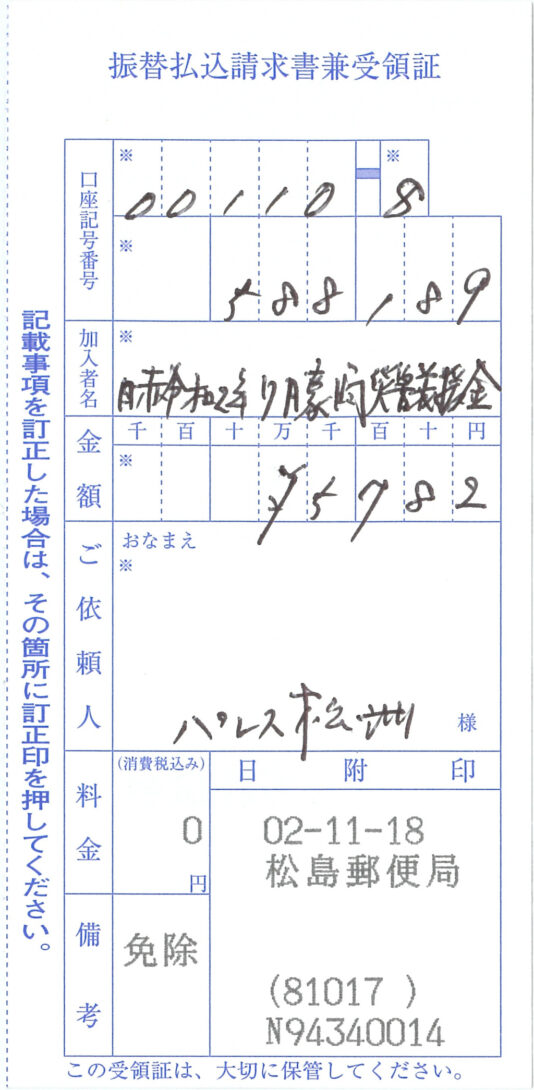 振替払込請求書兼受領証
口座記号番号
※
※
00110 8
※
588189
加入者名
※
日赤令和2年7月豪雨災害義援金
金額
千 百 十 万 千 百 十 円
※
¥5782
ご依頼人
おなまえ
※
パレス松洲
様
料金
(消費税込み)
0
円
日附印
02-11-18
松島郵便局
(81017 )
N94340014
備考
免除
この受領証は、大切に保管してください。
記載事項を訂正した場合は、その箇所に訂正印を押してください。